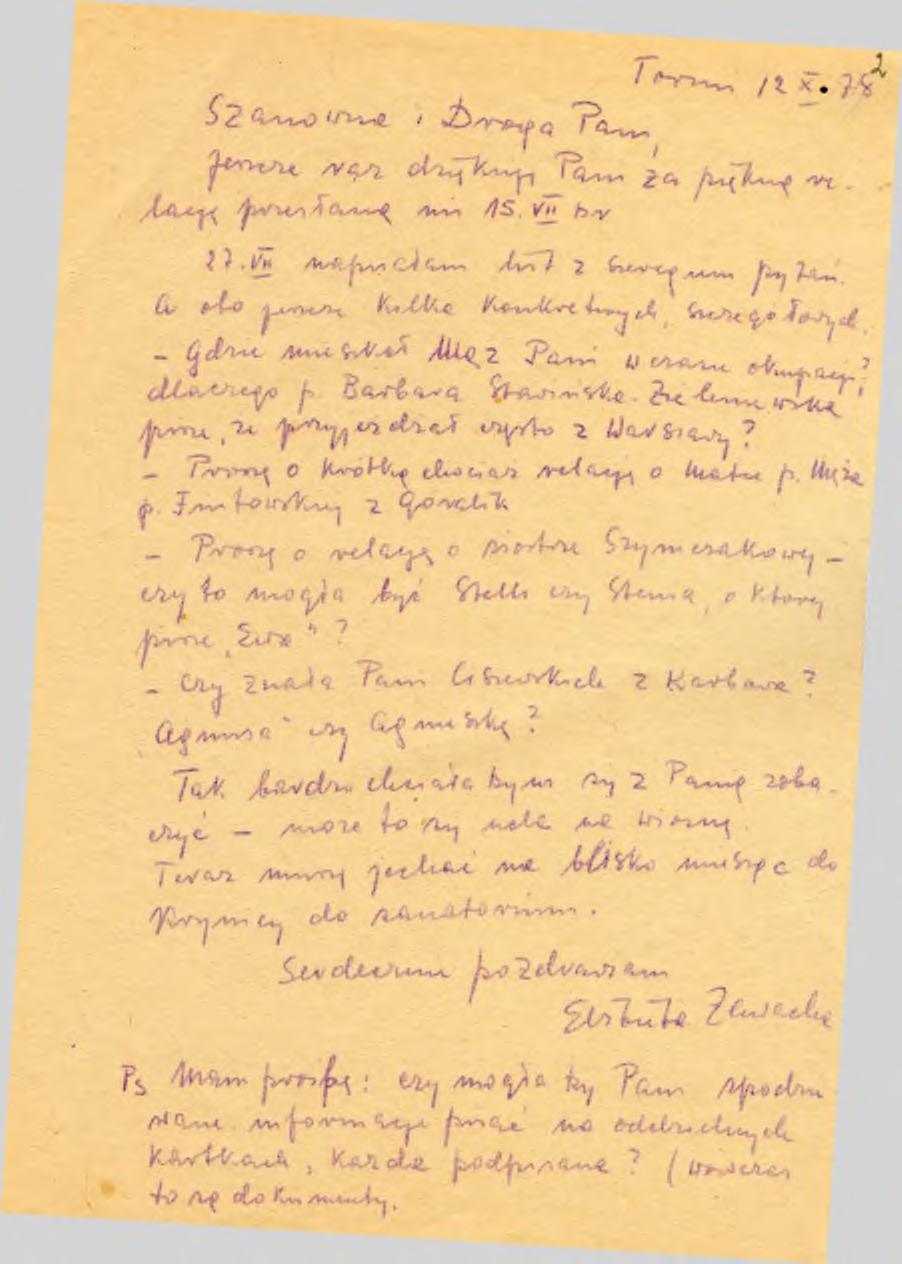 2
Toruń 12 X. 78
Szanowna i Droga Pani,
jeszcze raz dziękuję Pani za piękną re-
lację przesłaną mi 15. VII br
27. VII napisałam list z szeregiem pytań.
A oto jeszcze kilka konkretnych, szczegółowych.
- Gdzie mieszkał Mąż Pani w czasie okupacji?,
dlaczego p. Barbara Stawińska-Zieleniewska
pisze, że przyjeżdżał często z Warszawy?
- Proszę o krótką chociaż relację o matce p. Męża
p. z Goralik
- Proszę o relację o siostrze Szymczakowej -
czy to mogła być Stella czy Stenia, o której
pisze „Ewa"?
- Czy znała Pani Ciszewskich z Karbowa?
„Agnusa" czy Agnieszkę?
Tak bardzo chciałabym się z Panią zoba-
czyć - może to się uda na wiosnę.
Teraz muszę jechać na blisko miesiąc do
Krynicy do sanatorium.
Serdecznie pozdrawiam
Elżbieta Zawacka
Ps Mam prośbę: czy mogłaby Pani spodzie
wane informacje pisać na oddzielnych
kartkach, każda podpisana? (wówczas
to są dokumenty.